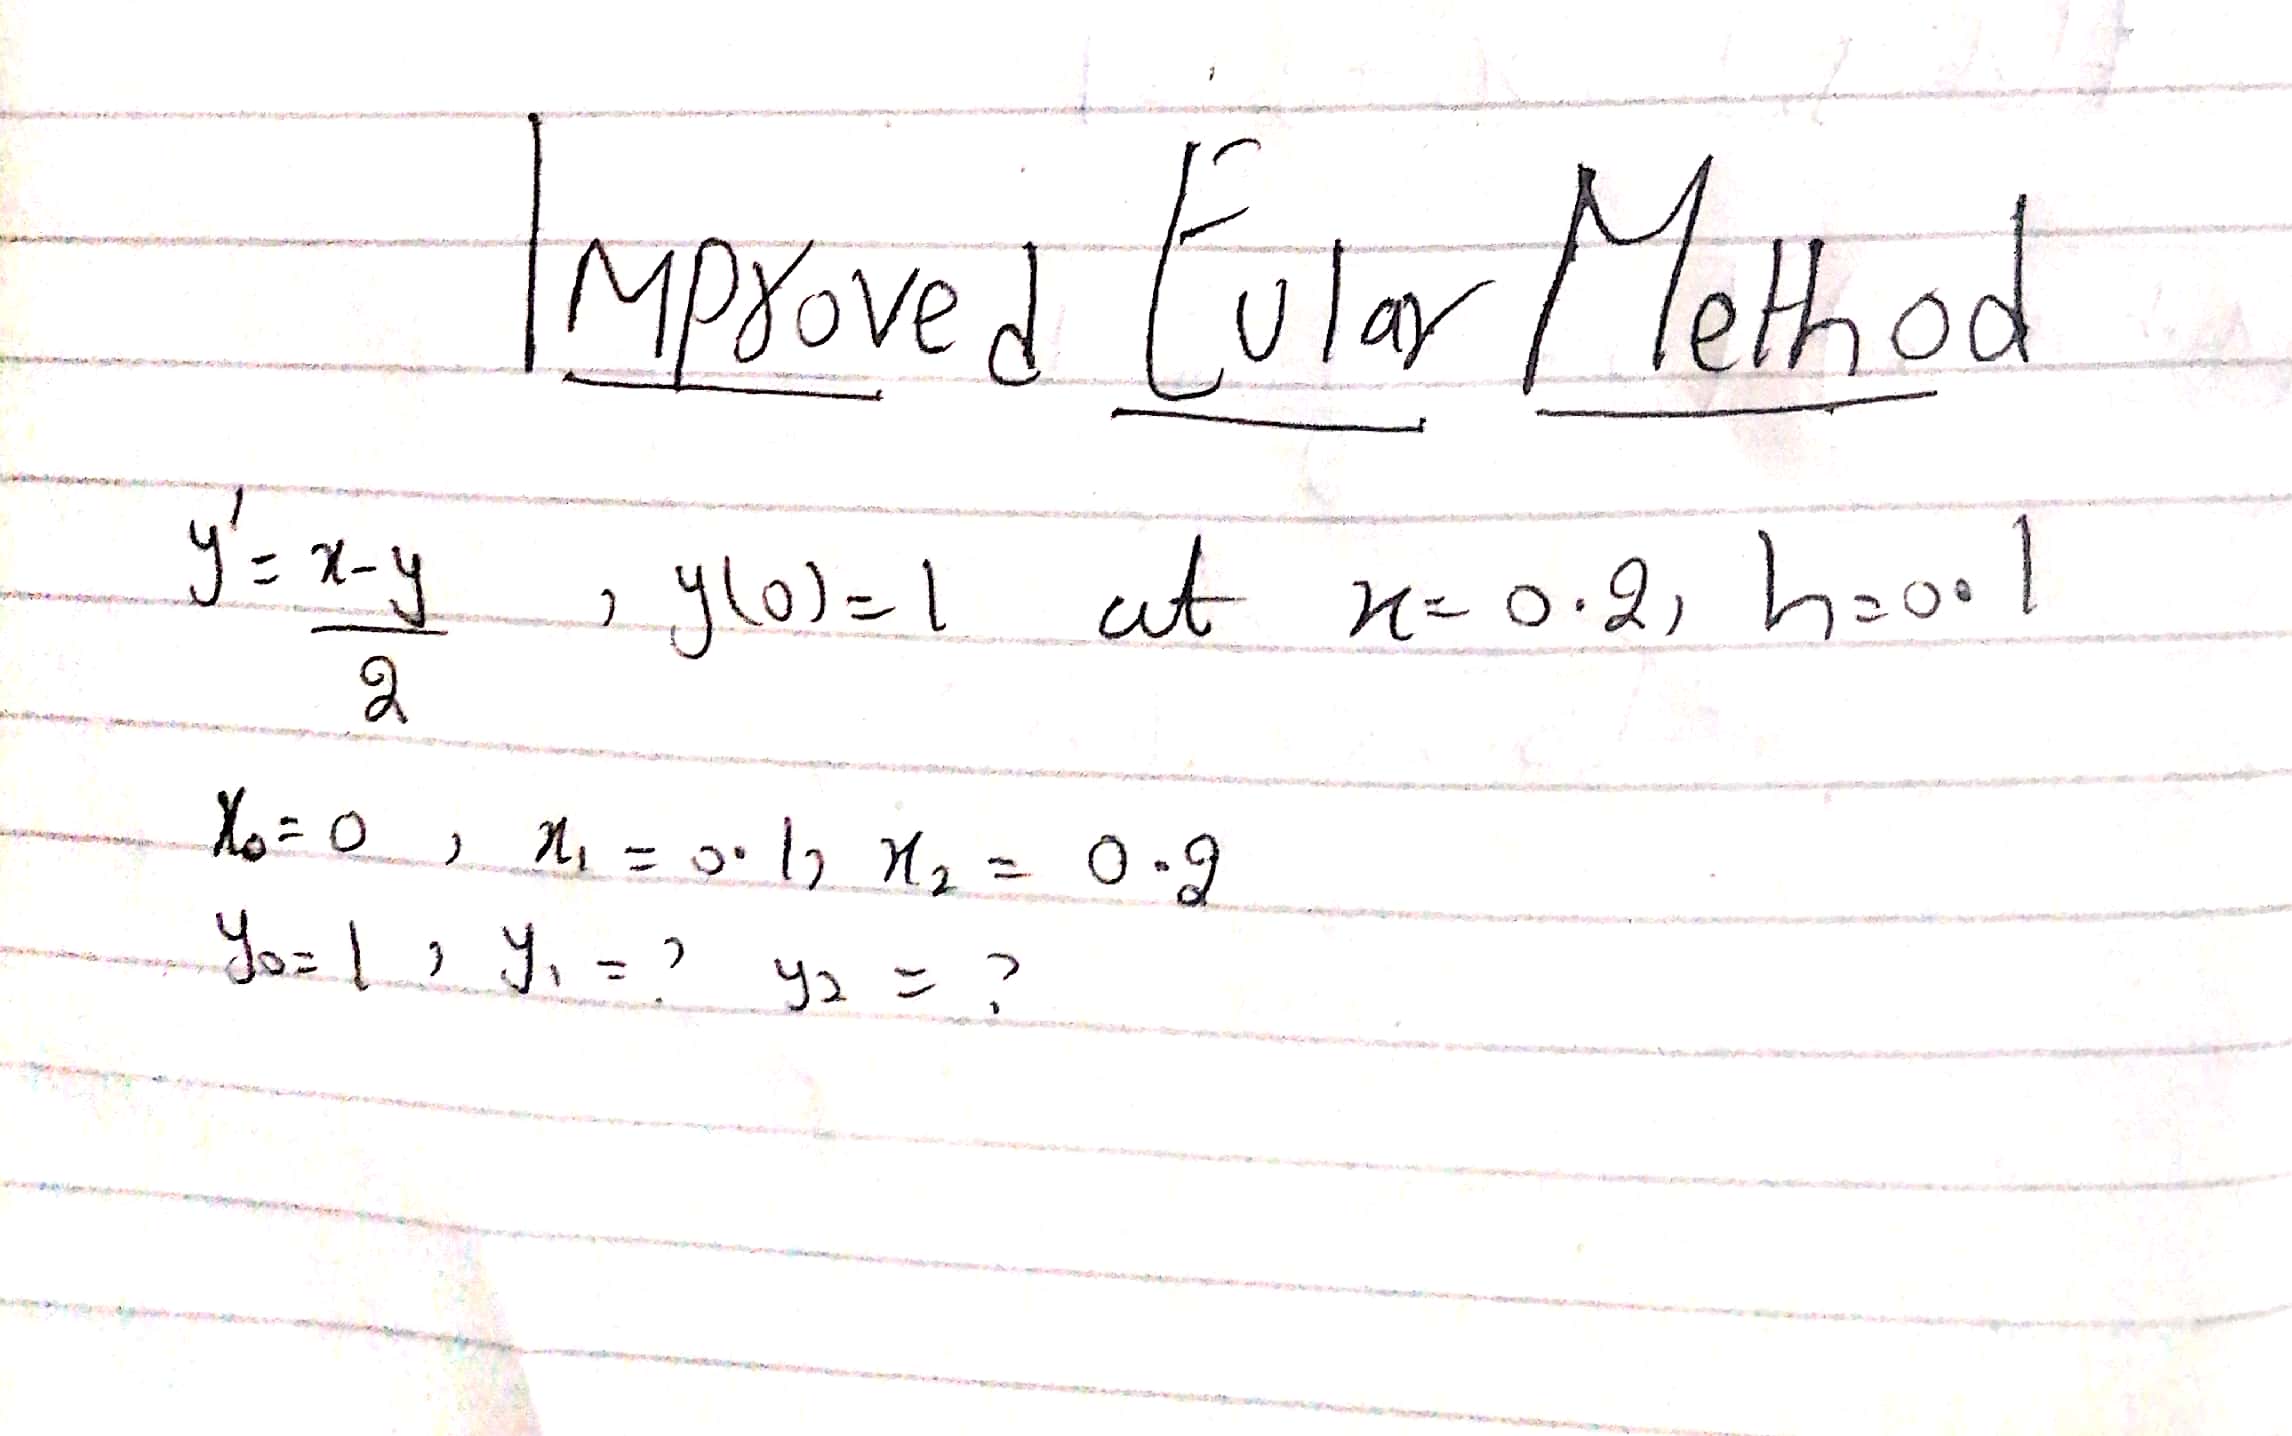 Improved Eular Method
y' = x-y/2 , y(0)=1 at x= 0.2, h=0.1
x₀=0 , x₁ = 0.1, x₂ = 0.2
y₀=1 , y₁ = ? y₂ = ?